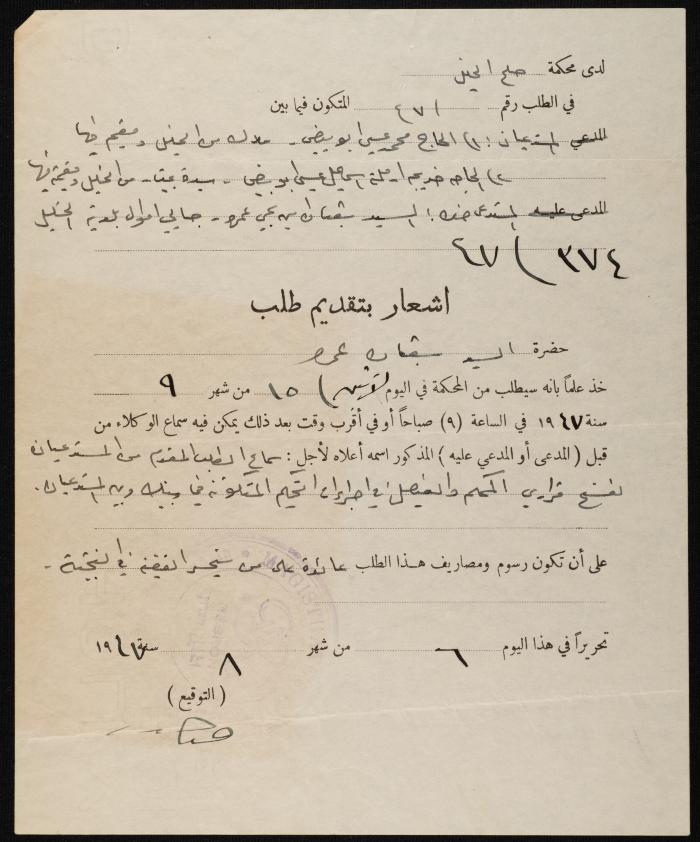 لدى محكمة صلح الخليل
في الطلب رقم ٤٧/ المتكون فيما بين
المدعي المستدعيان : ١) الحاج محمد عيسى ابو بيض - ملاك من الخليل ومقيم فيها
٢) الحاجه خديجه ارملة اسماعيل عيسى ابو بيض - سيدة بيت - من الخليل ومقيمة فيها
المدعى عليه المستدعى ضده : السيد شعبان يحيى عمرو - جابي اموال بلدية الخليل
٣٧٤/٤٧
اشعار بتقديم طلب
حضرة السيد شعبان عمرو
خذ علماً بانه سيطلب من المحكمة في اليوم الاثنين ١٥ من شهر ٩
سنة ١٩٤٧ في الساعة (٩) صباحاً أو في أقرب وقت بعد ذلك يمكن فيه سماع الوكلاء من
قبل (المدعى أو المدعي عليه) المذكور اسمه أعلاه لأجل : سماع الطلب المقدم من المستدعيان
لفسخ قراري المحكم والفيصل في اجراءات التحكيم المتكونة فيما بينك وبين المستدعيان .
على أن تكون رسوم ومصاريف هذا الطلب عائدة على من سيخسر القضية في النتيجة -
تحريراً في هذا اليوم ٦ من شهر ٨ سنة ١٩٤٧
(التوقيع)